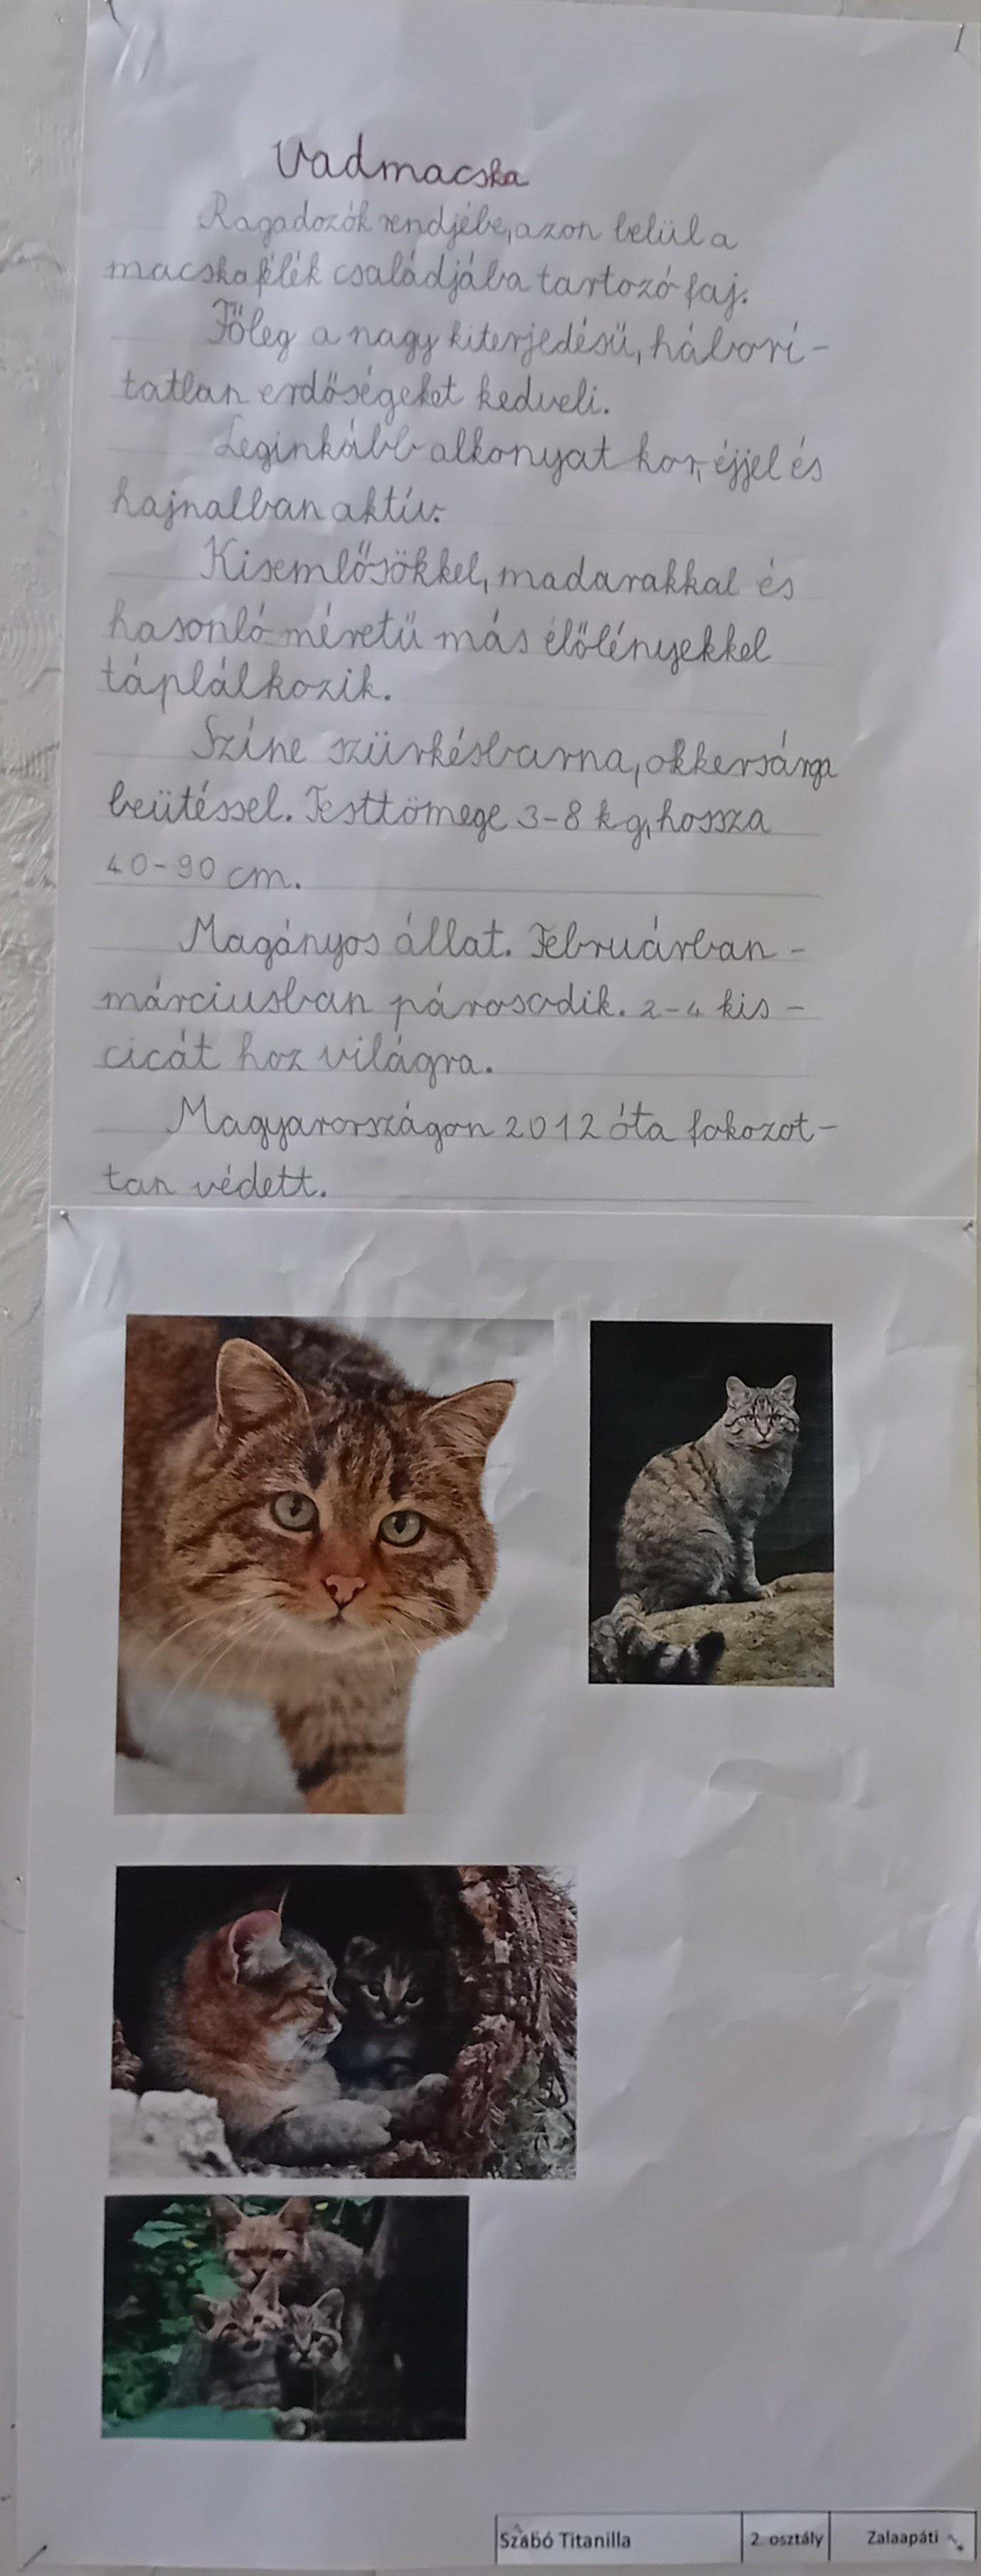 Vadmacska
Ragadozók rendjébe, azon belül a
macskafélék családjába tartozó faj.
Főleg a nagy kiterjedésű, hábori-
tatlan erdőségeket kedveli.
Leginkább alkonyat kor, éjjel és
hajnalban aktív.
Kisemlősökkel, madarakkal és
hasonló méretű más élőlényekkel
táplálkozik.
Színe szürkésbarna, okkersárga
beütéssel. Testtömege 3-8 kg, hossza
40-90 cm.
Magányos állat. Februárban -
márciusban párosodik. 2-4 kis -
cicát hoz világra.
Magyarországon 2012 óta fokozot-
tan védett.
Szabó Titanilla 2. osztály Zalaapáti